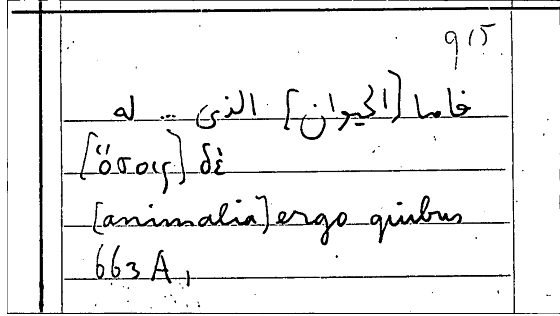 915
فاما [الحيوان] الذى .. له
[ὅσοις] δὲ
[animalia] ergo quibus
663 A,